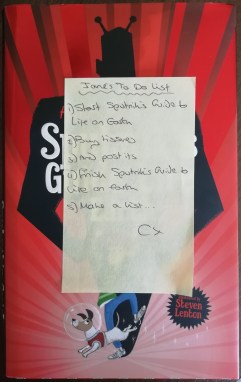 Jane's To Do List
1) Start Sputnik's Guide to
Life on Earth
2) Buy tissues
3) And post its
4) Finish Sputnik's Guide to
Life on Earth
5) Make a list...
Cx
S
G
Steven
Lenton